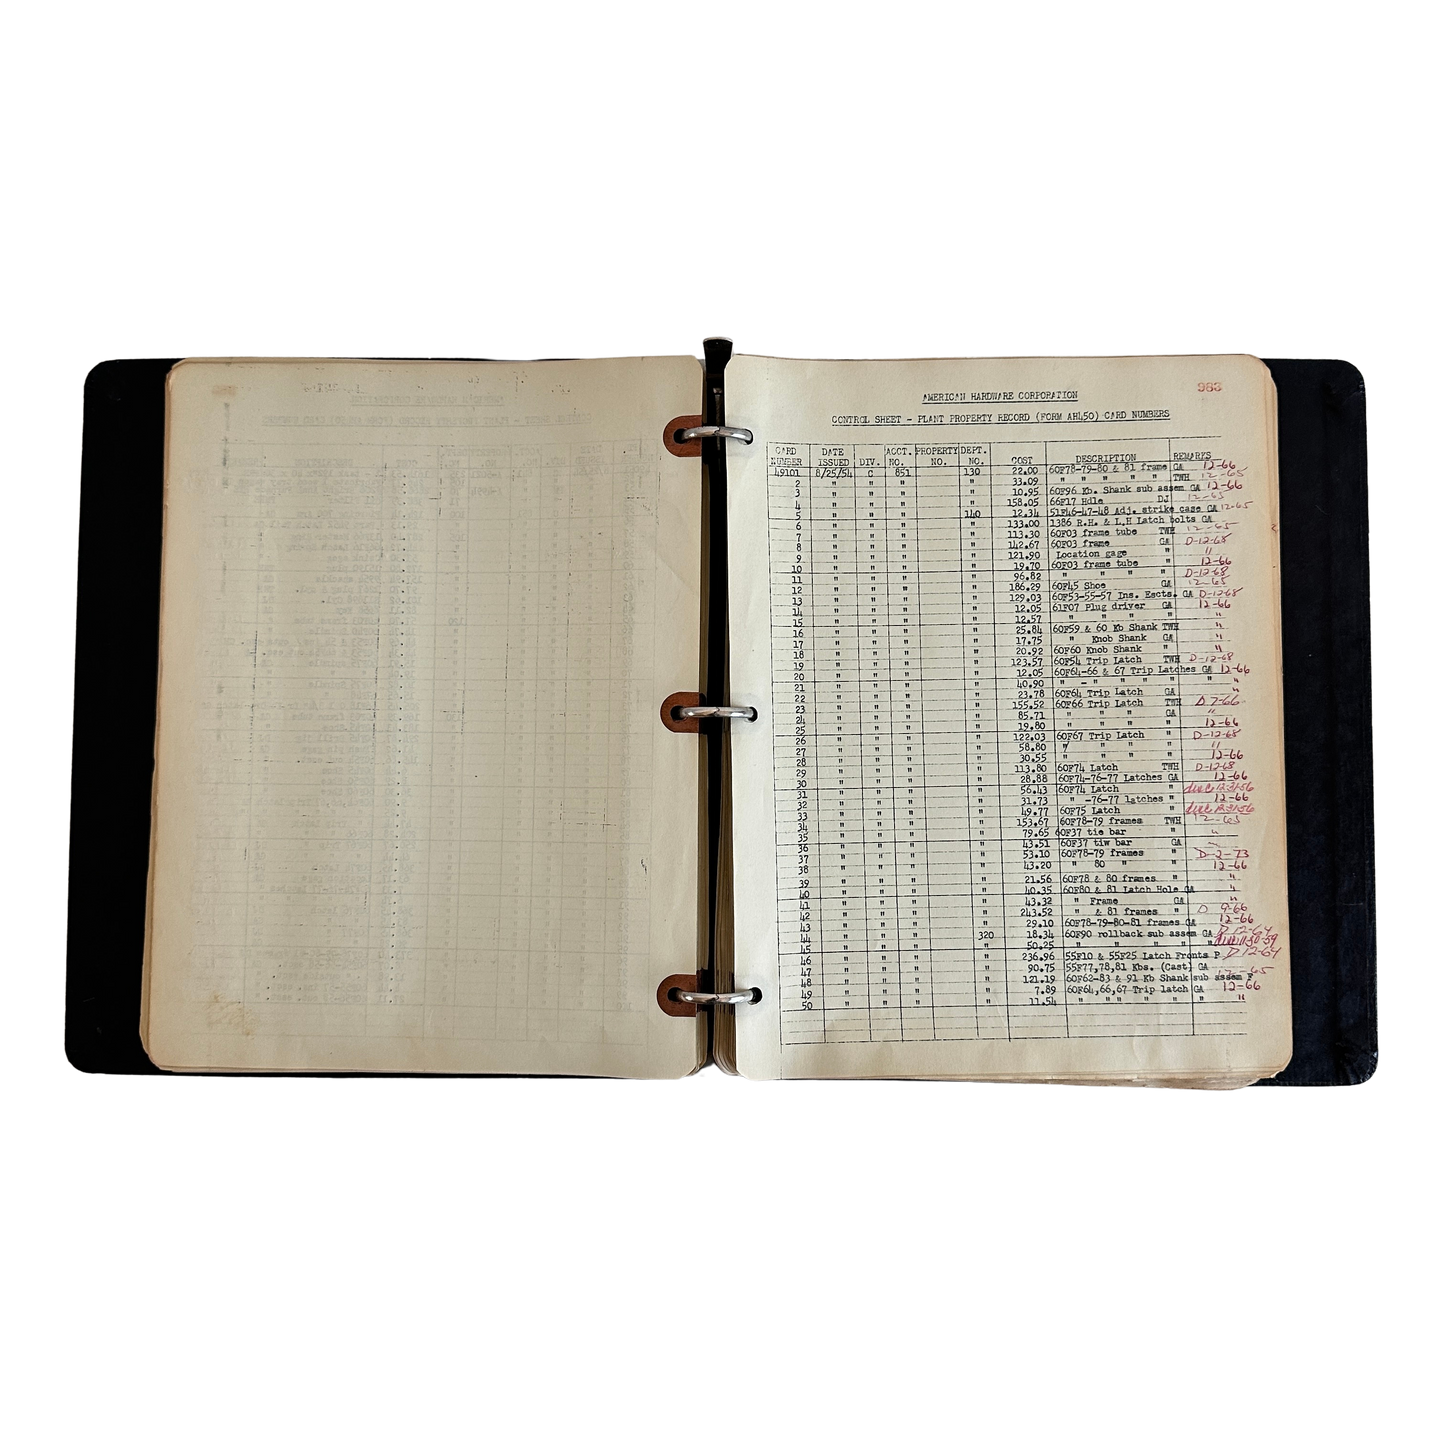 983
AMERICAN HARDWARE CORPORATION
CONTROL SHEET - PLANT PROPERTY RECORD (FORM AH450) CARD NUMBERS
CARD NUMBER DATE ISSUED DIV. ACCT. NO. PROPERTY NO. DEPT. NO. COST DESCRIPTION REMARKS
49101 8/25/54 C 851 130 22.00 60F78-79-80 & 81 frame GA 12-66
2 " " " " 33.09 " " " " " TWH 12-65
3 " " " " 10.95 60F96 Kb. Shank sub assem GA 12-66
4 " " " " 158.05 66F17 Hdle DJ 12-65
5 " " " 140 12.34 51F46-47-48 Adj. strike case GA 12-65
6 " " " " 133.00 1386 R.H. & L.H Latch bolts GA
7 " " " " 113.30 60F03 frame tube TWH 12-65
8 " " " " 142.67 60F03 frame GA D-12-68
9 " " " " 121.90 Location gage " "
10 " " " " 19.70 60F03 frame tube " 12-66
11 " " " " 96.82 " " " " D-12-68
12 " " " " 186.29 60F45 Shoe GA 12-65
13 " " " " 129.03 60F53-55-57 Ins. Escts. GA D-12-68
14 " " " " 12.05 61F07 Plug driver GA 12-66
15 " " " " 12.57 " " " " "
16 " " " " 25.84 60F59 & 60 Kb Shank TWH "
17 " " " " 17.75 " Knob Shank GA "
18 " " " " 20.92 60F60 Knob Shank " "
19 " " " " 123.57 60F54 Trip Latch TWH D-12-68
20 " " " " 12.05 60F64-66 & 67 Trip Latches GA 12-66
21 " " " " 40.90 " - " " " " " "
22 " " " " 23.78 60F64 Trip Latch GA "
23 " " " " 155.52 60F66 Trip Latch TWH D 7-66
24 " " " " 85.71 " " " GA "
25 " " " " 19.80 " " " " 12-66
26 " " " " 122.03 60F67 Trip Latch " D-12-68
27 " " " " 58.80 " " " " "
28 " " " " 30.55 " " " " 12-66
29 " " " " 113.80 60F74 Latch TWH D-12-68
30 " " " " 28.88 60F74-76-77 Latches GA 12-66
31 " " " " 56.43 60F74 Latch " 12-31-56
32 " " " " 31.73 " -76-77 latches " 12-66
33 " " " " 49.77 60F75 Latch " 12-31-56
34 " " " " 153.67 60F78-79 frames TWH 12-65
35 " " " " 79.65 60F37 tie bar "
36 " " " " 43.51 60F37 tiw bar GA
37 " " " " 53.10 60F78-79 frames " D-2-73
38 " " " " 43.20 " 80 " " 12-66
39 " " " " 21.56 60F78 & 80 frames " "
40 " " " " 40.35 60F80 & 81 Latch Hole GA "
41 " " " " 43.32 " Frame GA "
42 " " " " 243.52 " & 81 frames " D 9-66
43 " " " " 29.10 60F78-79-80-81 frames GA 12-66
44 " " " 320 18.34 60F90 rollback sub assem GA D 12-64
45 " " " " 50.25 " " " " " 11-30-59
46 " " " " 236.96 55F10 & 55F25 Latch Fronts P D 12-64
47 " " " " 90.75 55F77,78,81 Kbs. (Cast) GA
48 " " " " 121.19 60F62-83 & 91 Kb Shank sub assem F 12-65
49 " " " " 7.89 60F64,66,67 Trip latch GA 12-66
50 " " " " 11.54 " " " " " " "